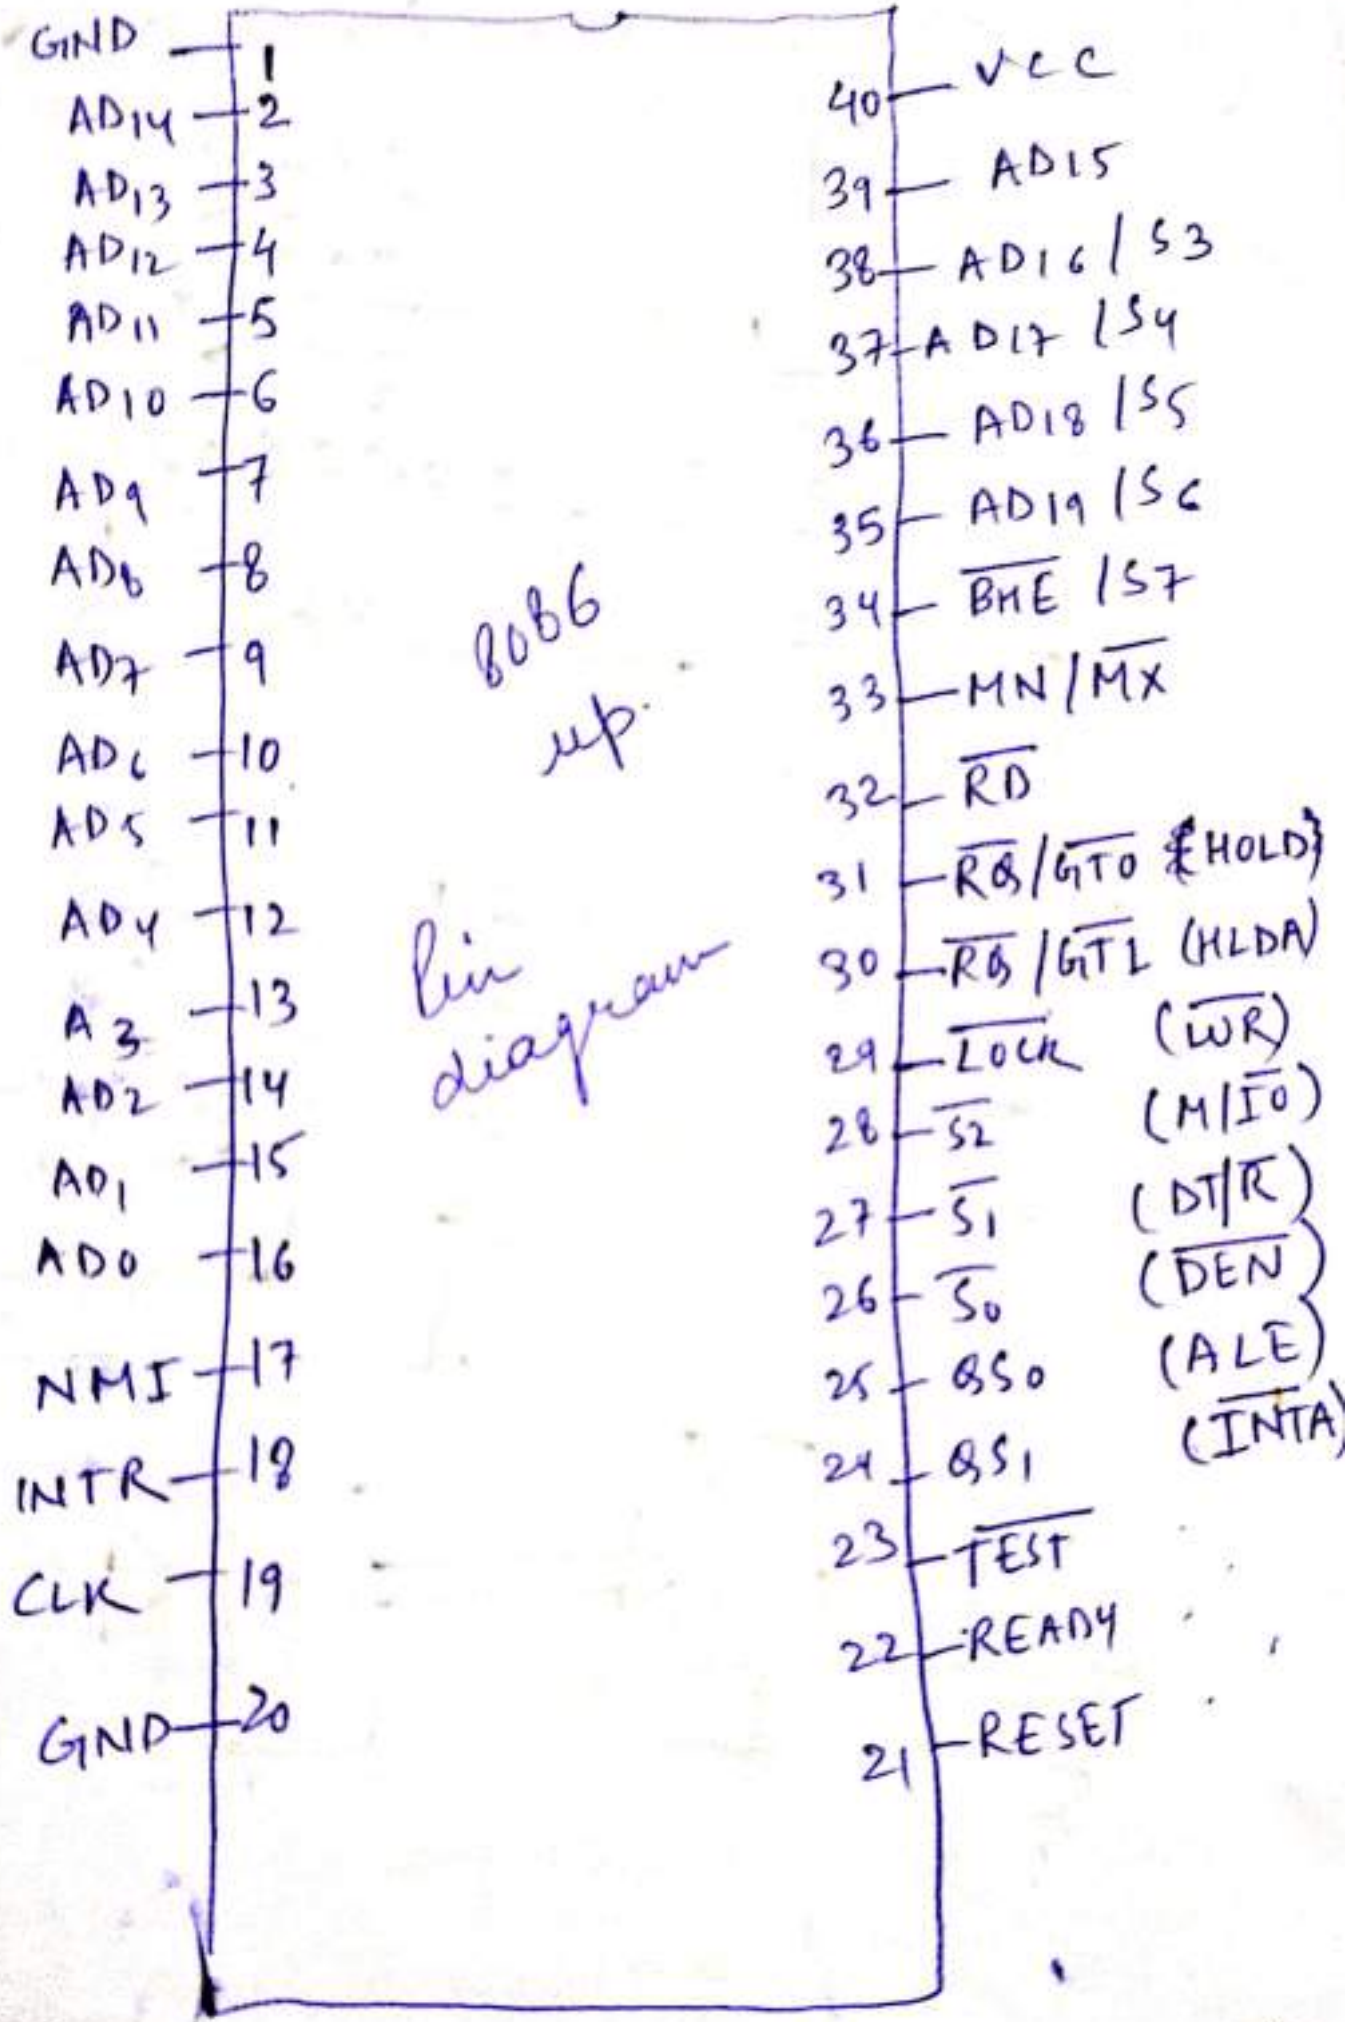 GND 1
AD14 2
AD13 3
AD12 4
AD11 5
AD10 6
AD9 7
AD8 8
AD7 9
AD6 10
AD5 11
AD4 12
A3 13
AD2 14
AD1 15
AD0 16
NMI 17
INTR 18
CLK 19
GND 20
8086
μp.
Pin
diagram
40 VCC
39 AD15
38 AD16 / S3
37 AD17 / S4
36 AD18 / S5
35 AD19 / S6
34 B̅H̅E̅ / S7
33 MN / M̅X̅
32 R̅D̅
31 R̅Q̅ / G̅T̅0̅ {HOLD}
30 R̅Q̅ / G̅T̅1̅ (HLDA)
29 L̅O̅C̅K̅ (W̅R̅)
28 S̅2̅ (M/I̅O̅)
27 S̅1̅ (DT/R̅)
26 S̅0̅ (D̅E̅N̅)
25 QS0 (ALE)
24 QS1 (I̅N̅T̅A̅)
23 T̅E̅S̅T̅
22 READY
21 RESET